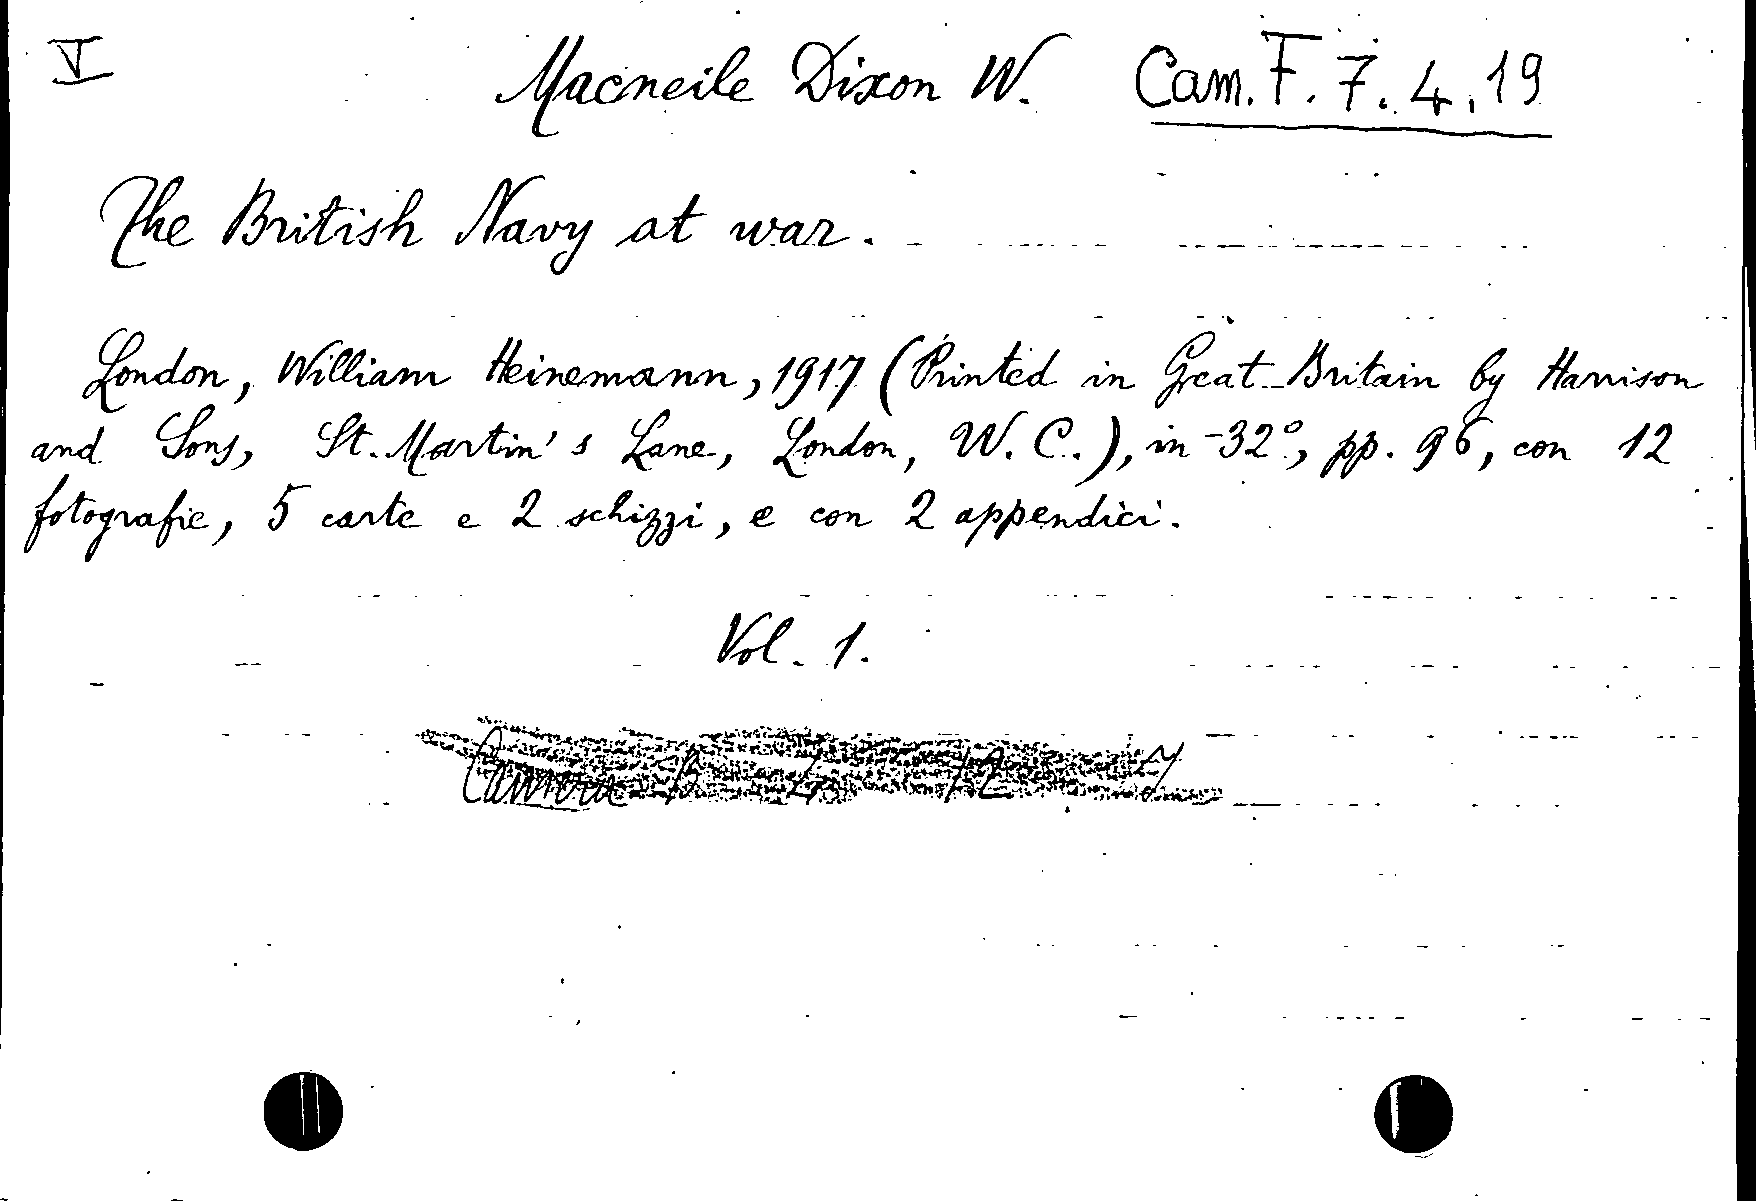 V Macneile Dixon W. Cam. F. 7. 4. 19
The British Navy at war.
London, William Heinemann, 1917 (Printed in Great-Britain by Harrison
and Sons, St. Martin's Lane, London, W. C.), in-32°, pp. 96, con 12
fotografie, 5 carte e 2 schizzi, e con 2 appendici.
Vol. 1.
Camera B